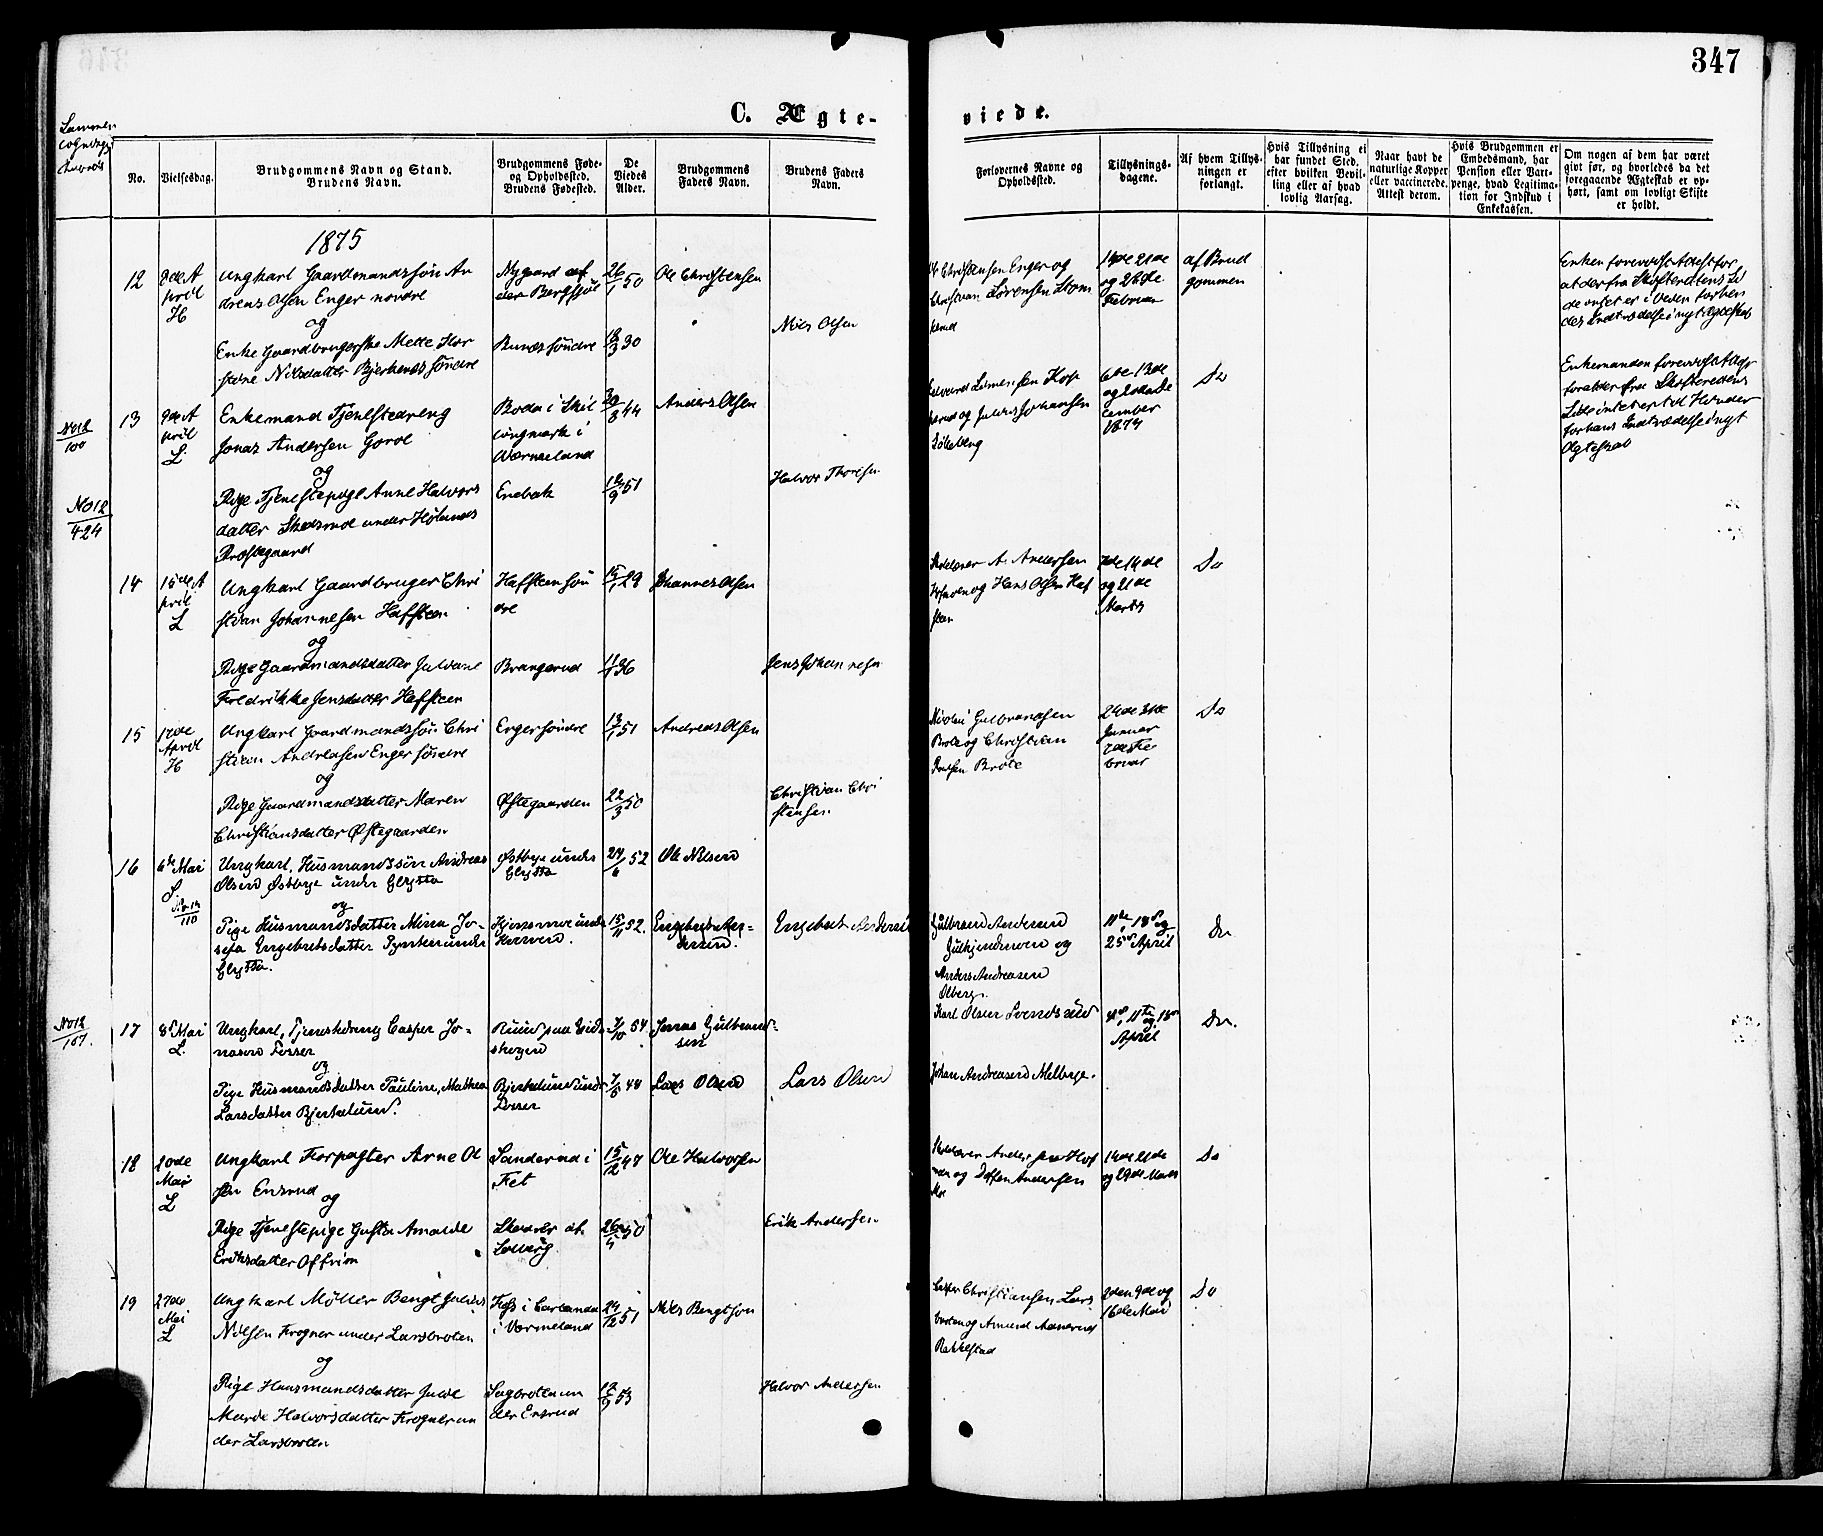 347
C. Ægte-
viede.
Sammen
No.
Vielsesdag.
Brudgommens Navn og Stand.
Brudens Navn.
Brudgommens Føde-
og Opholdssted.
Brudens Fødested.
De
Viedes
Alder.
Brudgommens
Faders Navn.
Brudens Faders
Navn.
Forlovernes Navne og
Opholdssted.
Tillysnings-
dagene.
Af hvem Tillys-
ningen er
forlangt.
Hvis Tillysning ei
har fundet Sted,
efter hvilken Bevil-
ling eller af hvad
lovlig Aarsag.
Naar havt de
naturlige Kopper
eller vaccinerede.
Attest derom.
Hvis Brudgommen er
Embedsmand, har
Pension eller Vart-
penge, hvad Legitima-
tion for Indskud i
Enkekassen.
Om nogen af dem har været
givt før, og hvorledes da det
foregaaende Ægteskab er op-
hørt, samt om lovligt Skifte
er holdt.
1875
12
2de A
pril
H
Ungkarl Gaardmandssøn An
dreas Olsen Enger nordre
og
Enke Gaardbrugerske Mette Kir
stine Nilsdatter Bjerkenes søndre
Nygaard
der Bergsjøe
Bunæs søndre
26/1 50
18/3 30
Ole Christensen
Niels Olsen
Ole Christensen Enger og
Christian Sørensen
14de 21de
og 28de
Februar
af Brud
gommen
Enken foreviste Attest for
at der fra Skifterettens Si
de intet er i Veien for hen
des Indtrædelse i nyt Ægteskab
No 12/100
13
9de A
pril
L
Enkemand Tjenestedreng
Jonas Andersen
og
Pige Tjenestepige Anne Halvors
datter Skedsrud under Hølands
Præstegaard
Boda i Skil
lingmark i
Wærmeland
Enebak
30/8 44
18/9 51
Anders Olsen
Halvor Thorsen
og Julius Johansen
6te 13de
og 20de De
cember
1874
Do
Enkemanden foreviste Attest
for at der fra Skifterettens
Side intet er til Hinder
for hans Indtrædelse i nyt
Ægteskab
No 12/424
14
15de A
pril
L
Ungkarl Gaardbruger Chri
stian Johannesen Hafsteen
og
Pige Gaardmandsdatter Juliane
Fredrikke Jensdatter Hafsteen
Hafsteen søn
dre
Brangerud
15/1 29
11/1 36
Johannes Olsen
Jens Johannesen
A. Andersen
og Hans Olsen Haf
steen
7de 14de
og 21de
Marts
Do
15
17de
April
H
Ungkarl Gaardmandssøn Chri
stian Andreasen Enger søndre
og
Pige Gaardmandsdatter Maren
Christiansdatter Østegaarden
Enger søndre
Østegaarden
13/1 51
22/3 50
Andreas Olsen
Christian Chri
stensen
Nicolai Gulbrandsen
Brote og Christian
Brote
24de 31de
Januar
7de Fe
bruar
Do
16
6te Mai
L.
No 12/110
Ungkarl, Husmandssøn Andreas
Olsen Østbye under
og
Pige Husmandsdatter Mina Jo-
sefa Engebretsdatter Pynten under
Østbye under
24/6 52
15/11 52.
Ole Nilsen
Engebret An-
dersen.
Engebret Andersen
Gulbrand Andersen
og
Anders Andreasen
Olberg.
11te, 18de og
25de April
Do
No 12/167.
17
8de Mai
L.
Ungkarl, Tjenestedreng Casper Jo-
nasen Fosser
og
Pige Husmandsdatter Pauline Mathea
Larsdatter Bjerkelund.
Ruud paa Eids
skogen
Bjerkelund under
Fosser
3/10 54
7/8 48
Jonas Gulbrand-
sen
Lars Olsen
Lars Olsen
Karl Olsen
Johan Andreasen Melbye.
4de, 11te og 18de
April
Do.
18
20de
Mai
L
Ungkarl Forpagter Arne Ol
sen Ensrud
og
Pige Tjenestepige Gusta Amalie
Eriksdatter
Sanderud i
Fet
15/12 47
26/4 50
Ole Halvorsen
Erik Andersen
og Andersen
14de 21de
og 29de Marts
Do
19
27de
Mai
L
Ungkarl Møller Bengt Julius
Nilsen Frogner under Larsbroten
og
Pige Huusmandsdatter Julie
Marie Halvorsdatter Frogner un
der Larsbroten
i Værmeland
Sagbroten un
der Ensrud
24/12 51
12/9 53
Nils Bengtson
Halvor Andersen
Casper Christiansen Lars
broten og Amund
Rakkestad
2den 9de og
16de Mai
Do